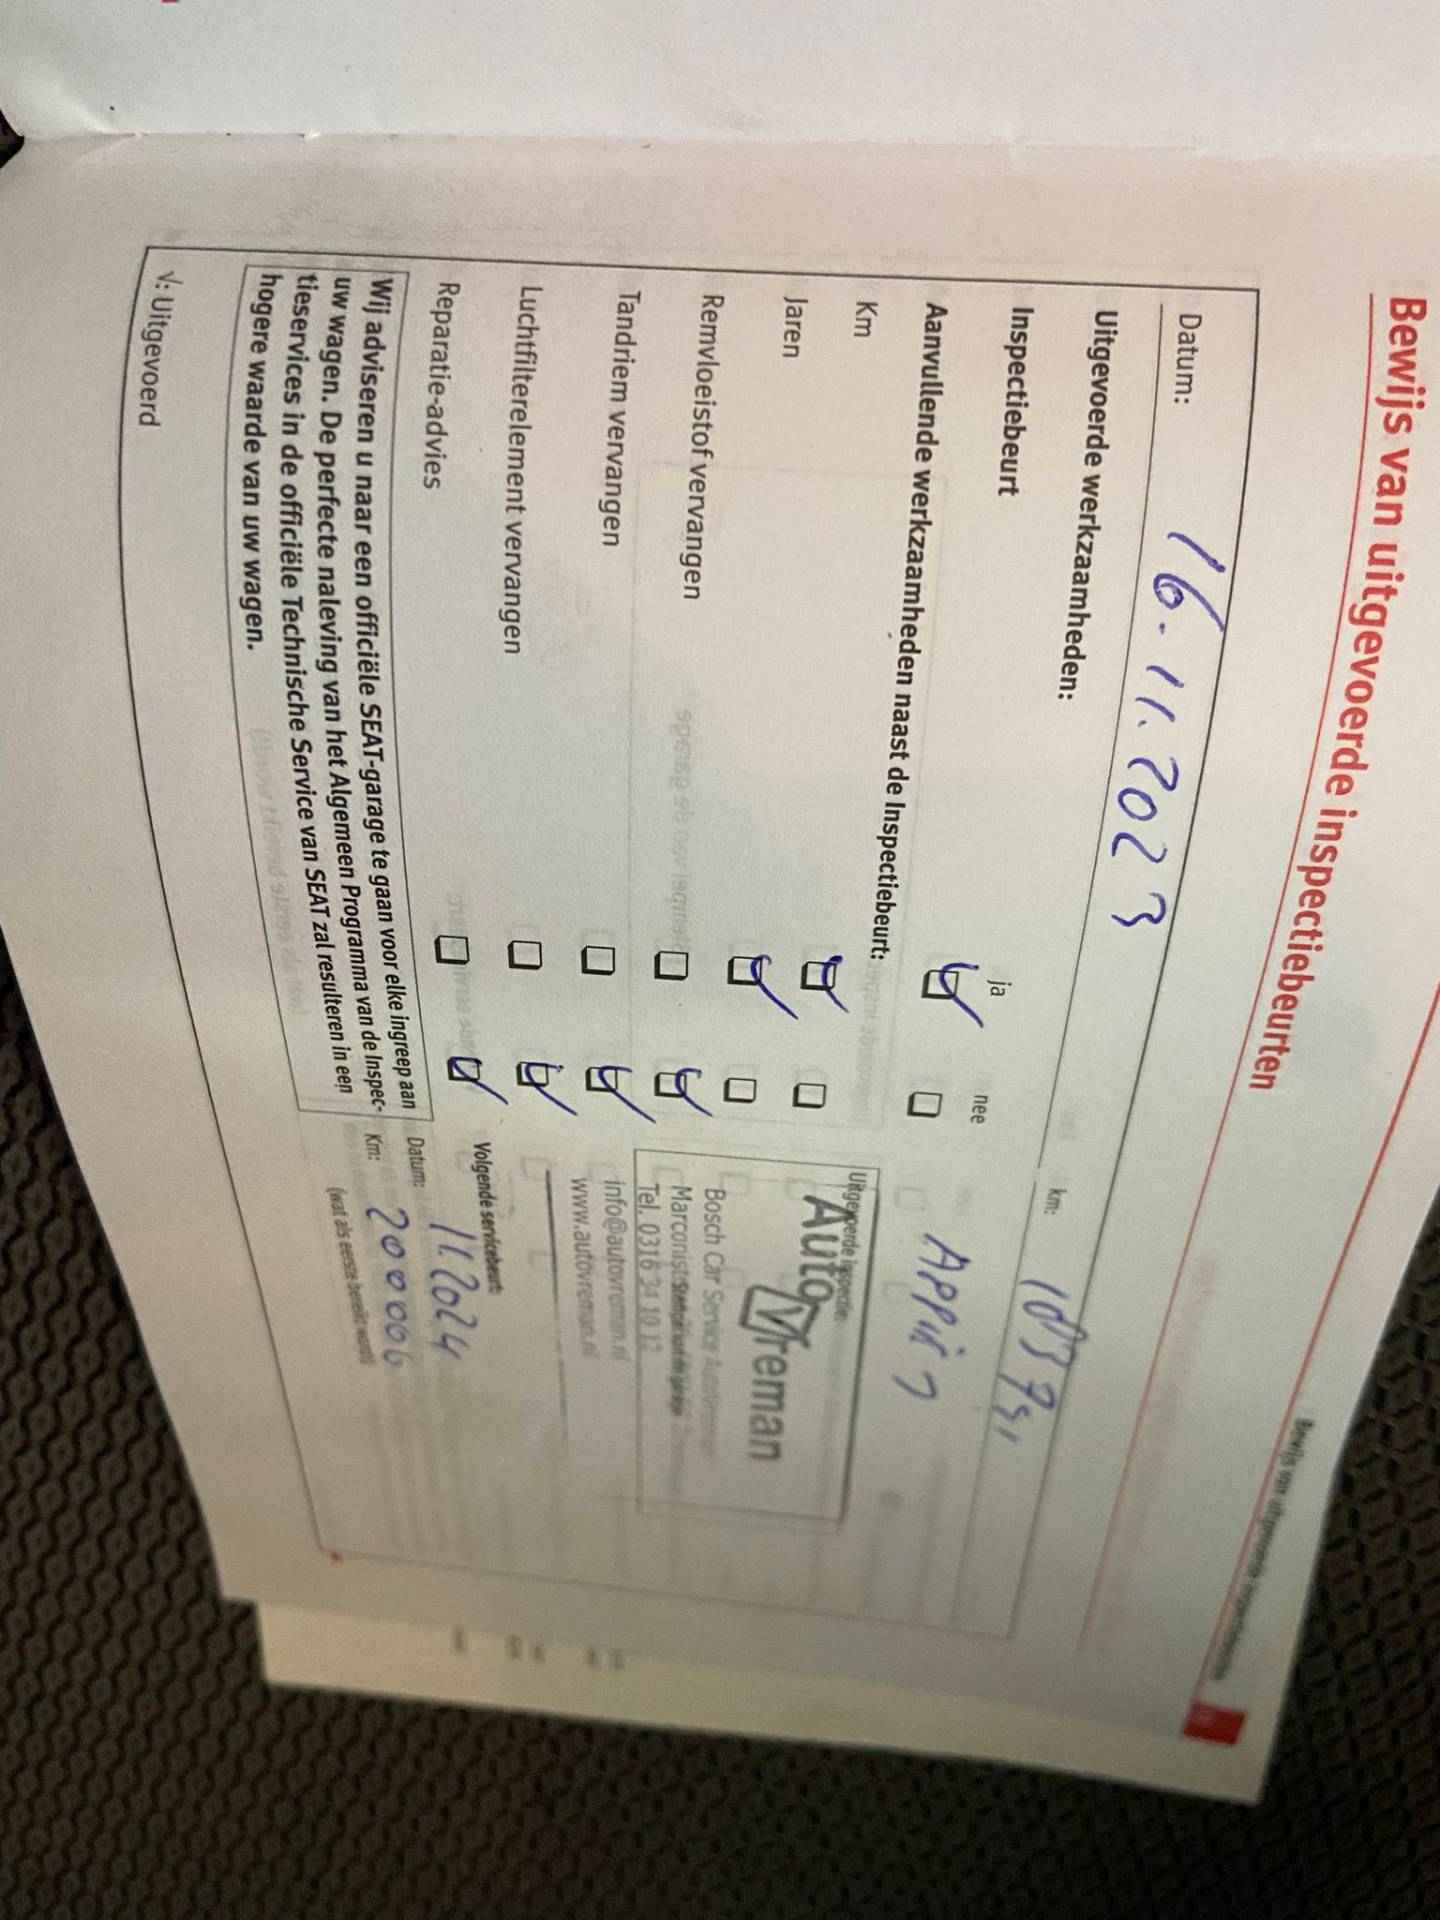 Bewijs van uitgevoerde inspectiebeurten
Bewijs van uitgevoerde inspectiebeurten
Datum: 16.11.2023 km:
Uitgevoerde werkzaamheden:
ja nee
Inspectiebeurt
Aanvullende werkzaamheden naast de Inspectiebeurt:
Km
Jaren
Remvloeistof vervangen
Tandriem vervangen
Luchtfilterelement vervangen
Reparatie-advies
Wij adviseren u naar een officiële SEAT-garage te gaan voor elke ingreep aan
uw wagen. De perfecte naleving van het Algemeen Programma van de Inspec-
tieservices in de officiële Technische Service van SEAT zal resulteren in een
hogere waarde van uw wagen.
√: Uitgevoerd
Uitgevoerde inspectie:
Auto Vreman
Bosch Car Service
Stempel van de garage
Tel. 0316 34 10 12
info@autovreman.nl
www.autovreman.nl
Volgende servicebeurt:
Datum: 11.2024
Km: 200000
(wat als eerste bereikt wordt)